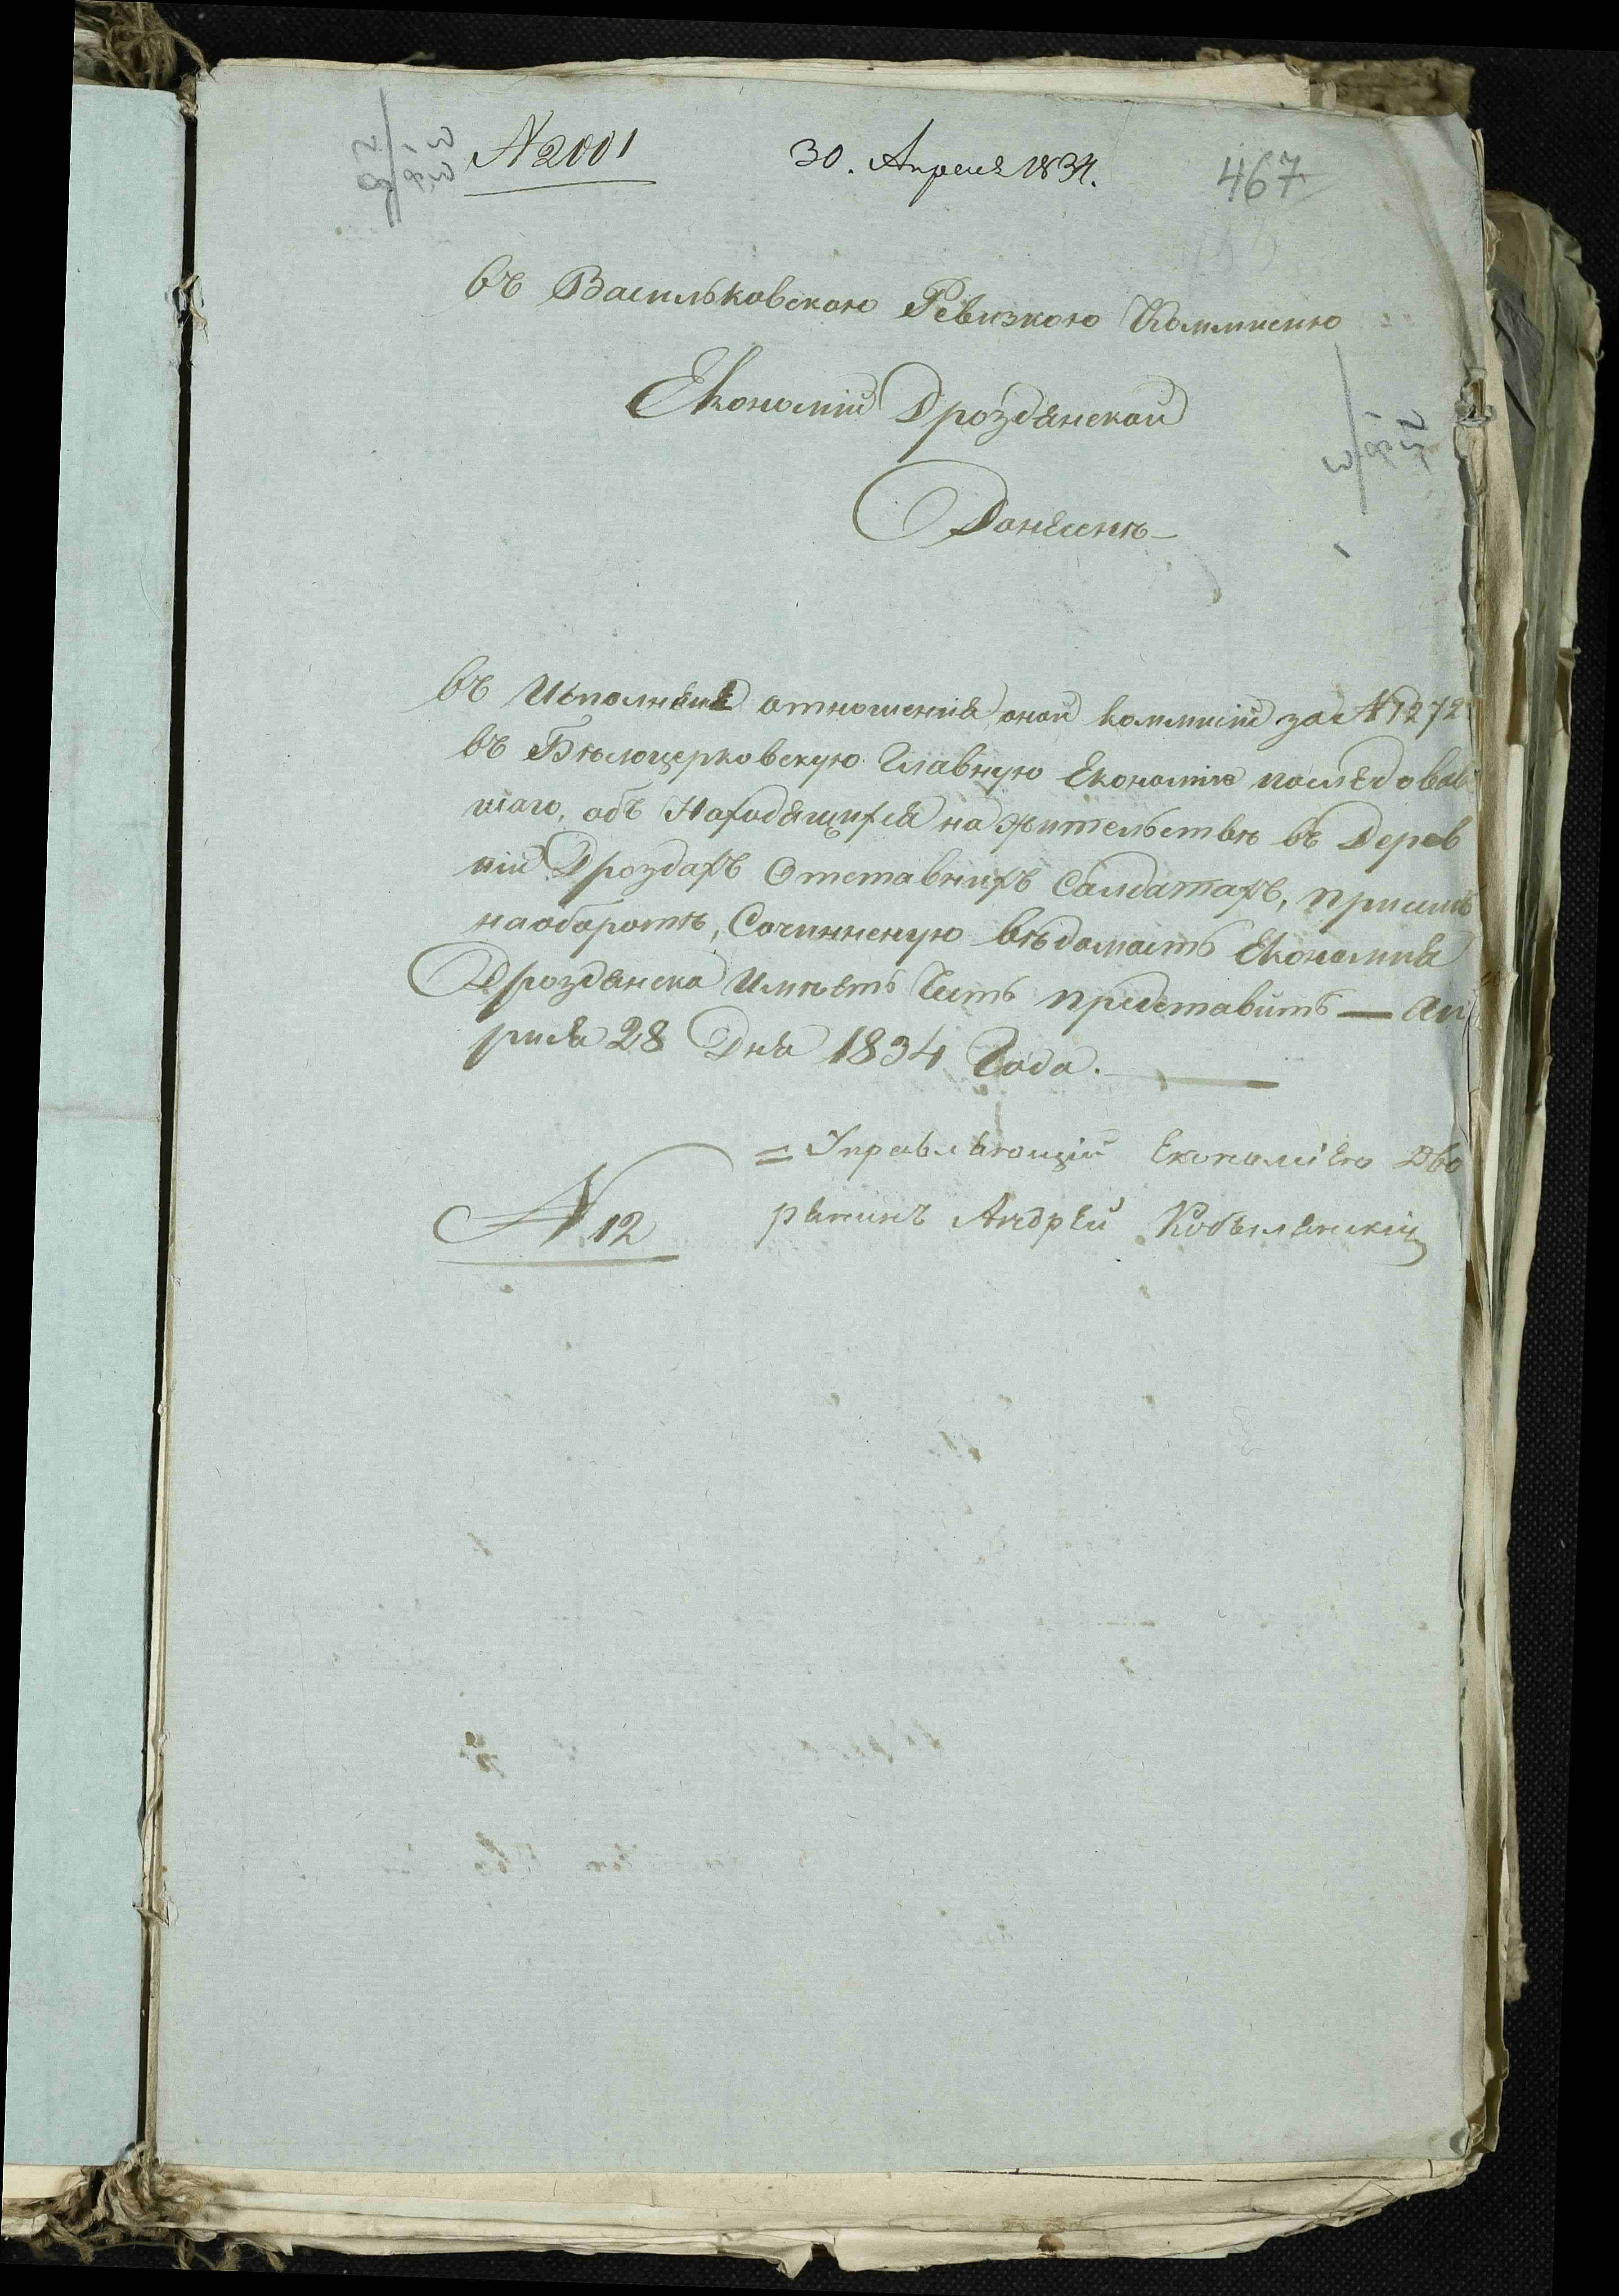 N 2001
30. Апреля 1834.
467
въ Васильковскою Ревизкою Коммисию
Економіи Дроздянской
Донесение
въ Исполнение отношения оной коммисіи за N 1272
въ Бѣлоцерковскую Главную Економию последовав
шаго, объ Находящихся на жительствѣ въ Дерев
ніи Дроздахъ Отставнихъ Салдатахъ, при семъ
на оборотѣ, Сочинненую вѣдомость Економия
Дроздянска Имѣетъ Честь представить — Ап
риля 28 Дня 1834 Года.
= Управляющій Економіею Дво
рянинъ Андрей Кобылянскій
N 12